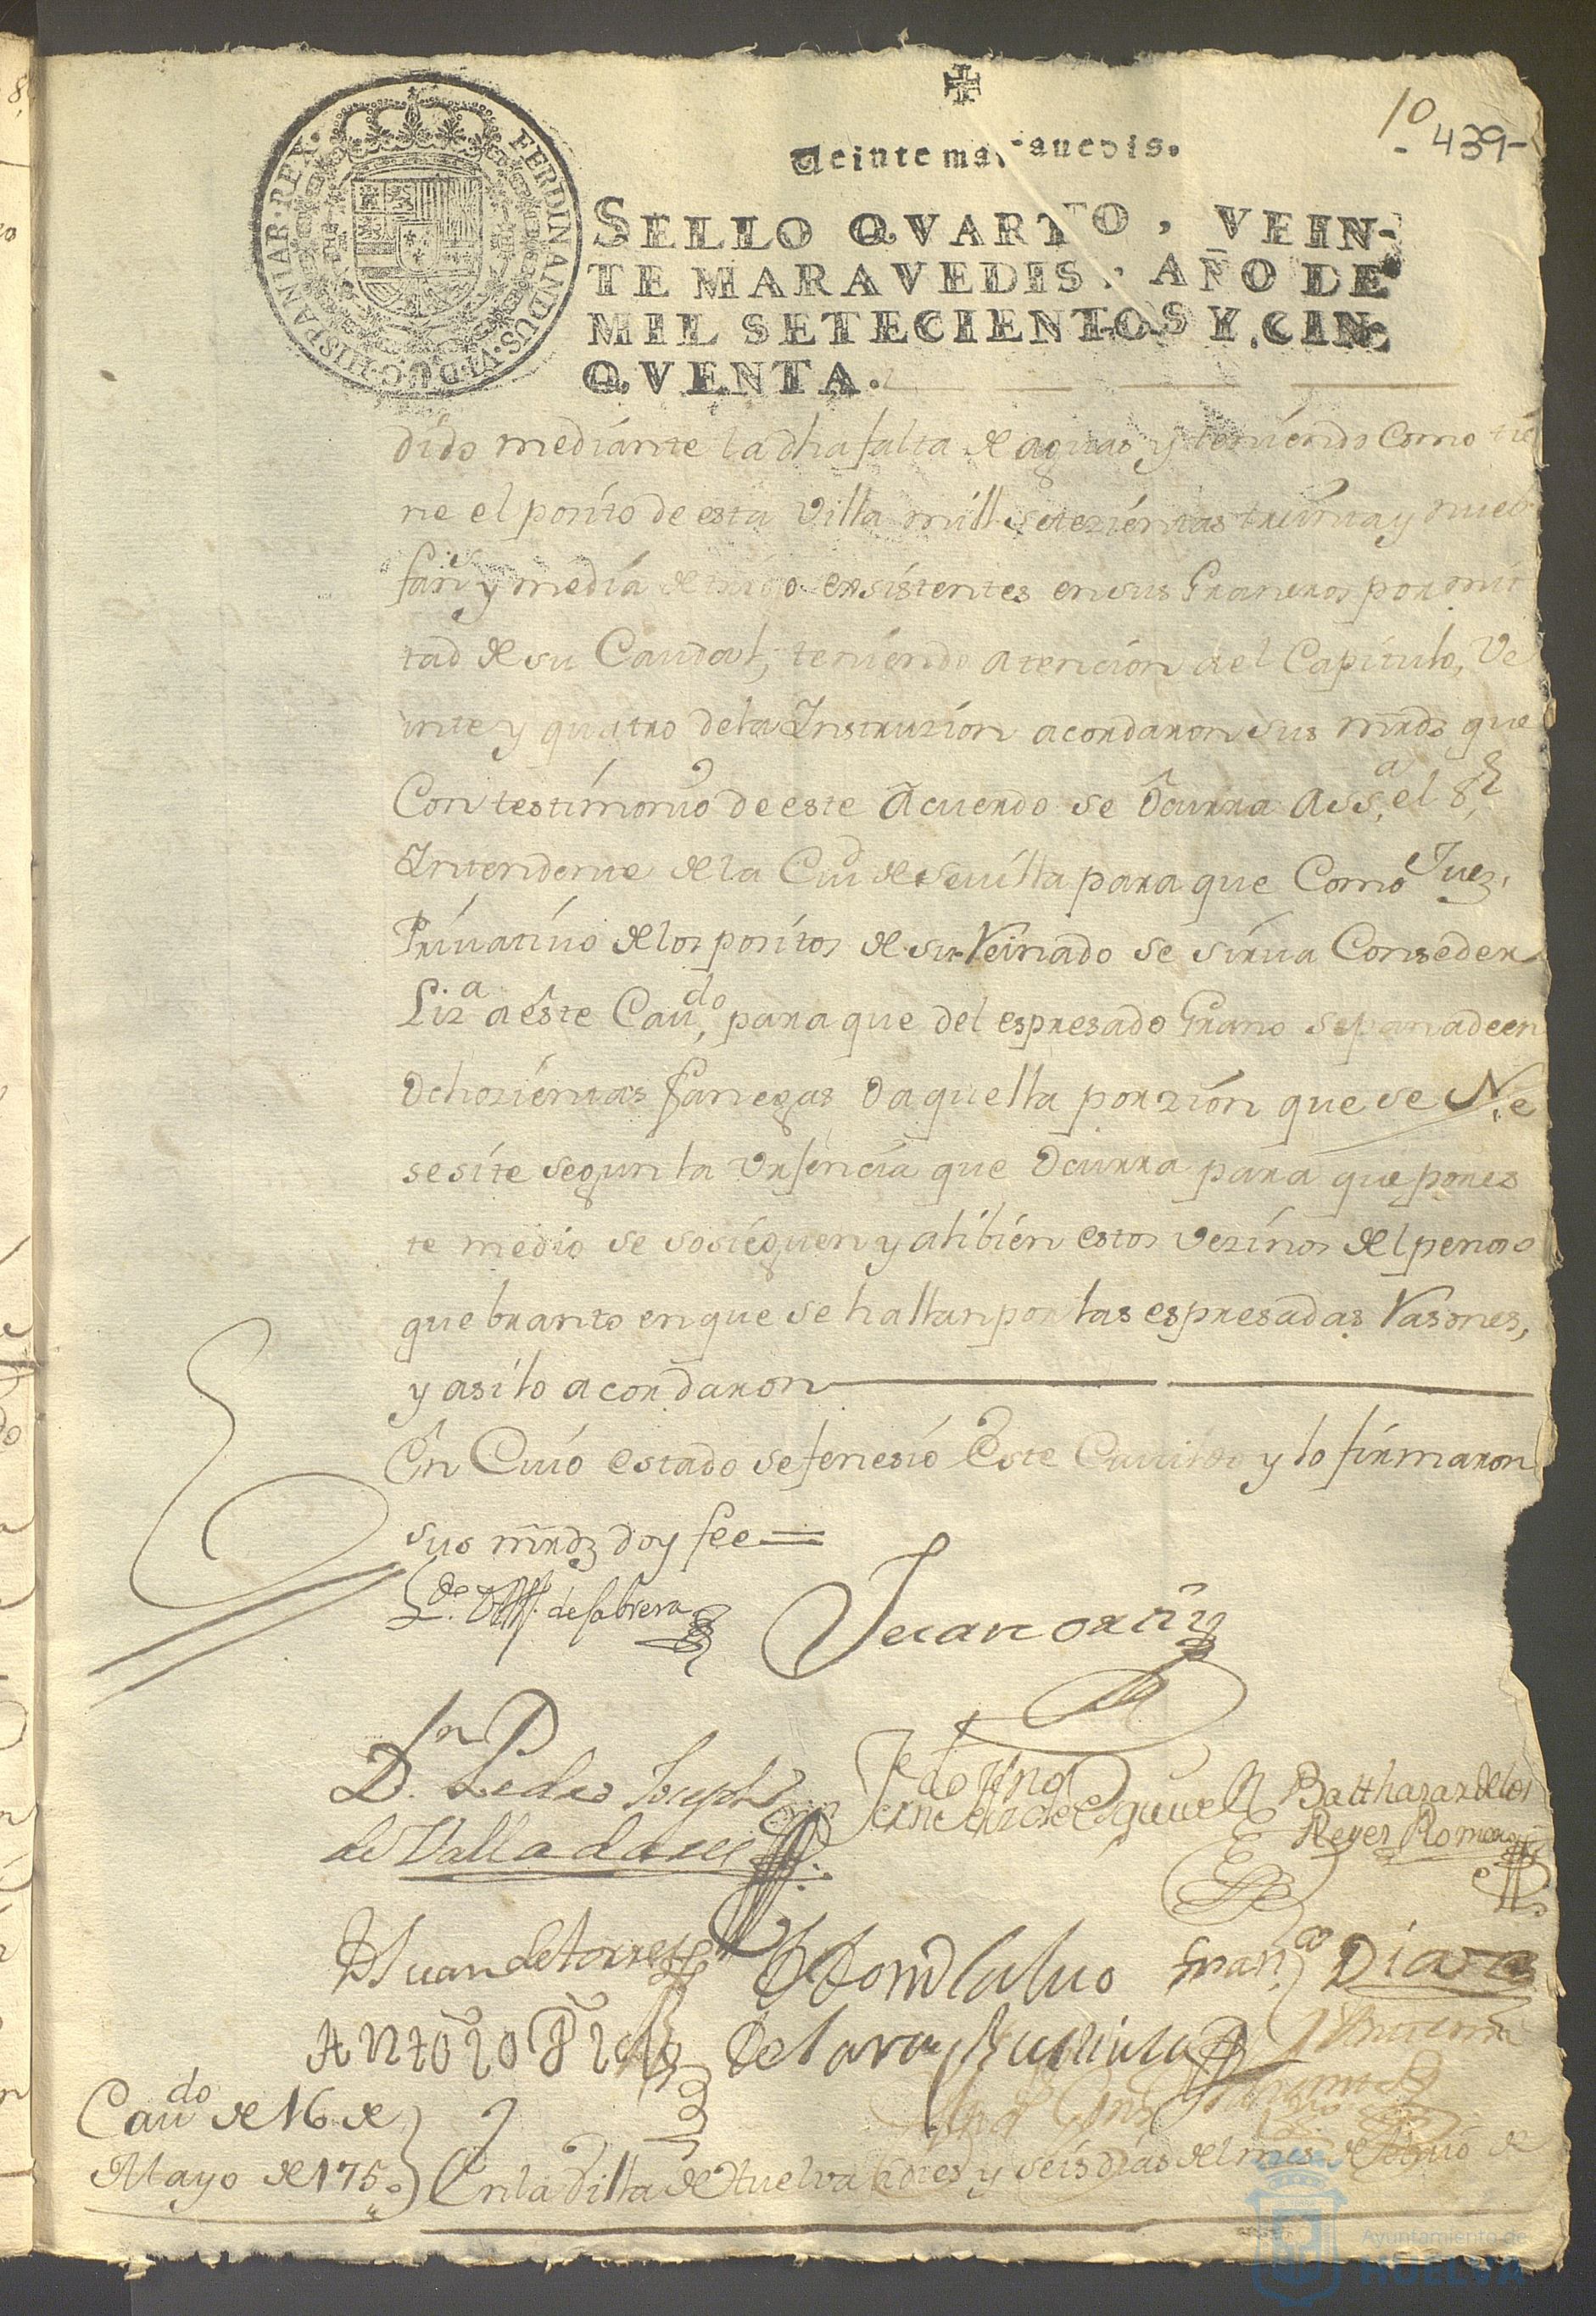 10
439
Veinte maravedis.
SELLO QVARTO, VEIN-
TE MARAVEDIS, AÑO DE
MIL SETECIENTOS Y CIN-
QVENTA.
FERDINANDUS·VI·D·G·HISPANIAR·REX·
dido mediante la dha falta de aguas y teniendo Como tie
ne el posito de esta Villa mill seteziéntas treinta y nueb
fans y media de trigo existentes en sus Graneros por mi
tad de su Caudal, teniendo atencion a el Capitulo, Ve
inte y quatro de la Instruzion acordaron sus mrds que
Con testimonio de este Acuerdo se Ocurra a ss.a el sr.
Intendente de la Ciud de Sevilla para que Como Juez
Privativo de los positos de su Reinado se sirva Conseder
Liza a este Cavdo, para que del espresado Grano separade en
Ochozientas fanegas Daquella porzion que se Ne
sesite segun la Urjencia que Ocurra para que por es
te medio se sosieguen y alibien estos vezinos del penoso
quebranto en que se hallan por las espresadas Rasones,
y asi lo acordaron
En Cuio estado se fenesió Este Cavildo y lo firmaron
sus mrds doy fee =
Ldo. de Cabrera
Juan ortiz
Dn. Pedro Joseph
de Valladares
Fernendez de Esquivel
Balthazar de los
Reyes Romero
Juan de torres
Calvo
Fran.co Diaz
Antonio
de Lara
Cavdo de 16 de
Mayo de 1750
En la Villa de Huelva a dies y seis dias del mes de Maio de
Ayuntamiento de
HUELVA